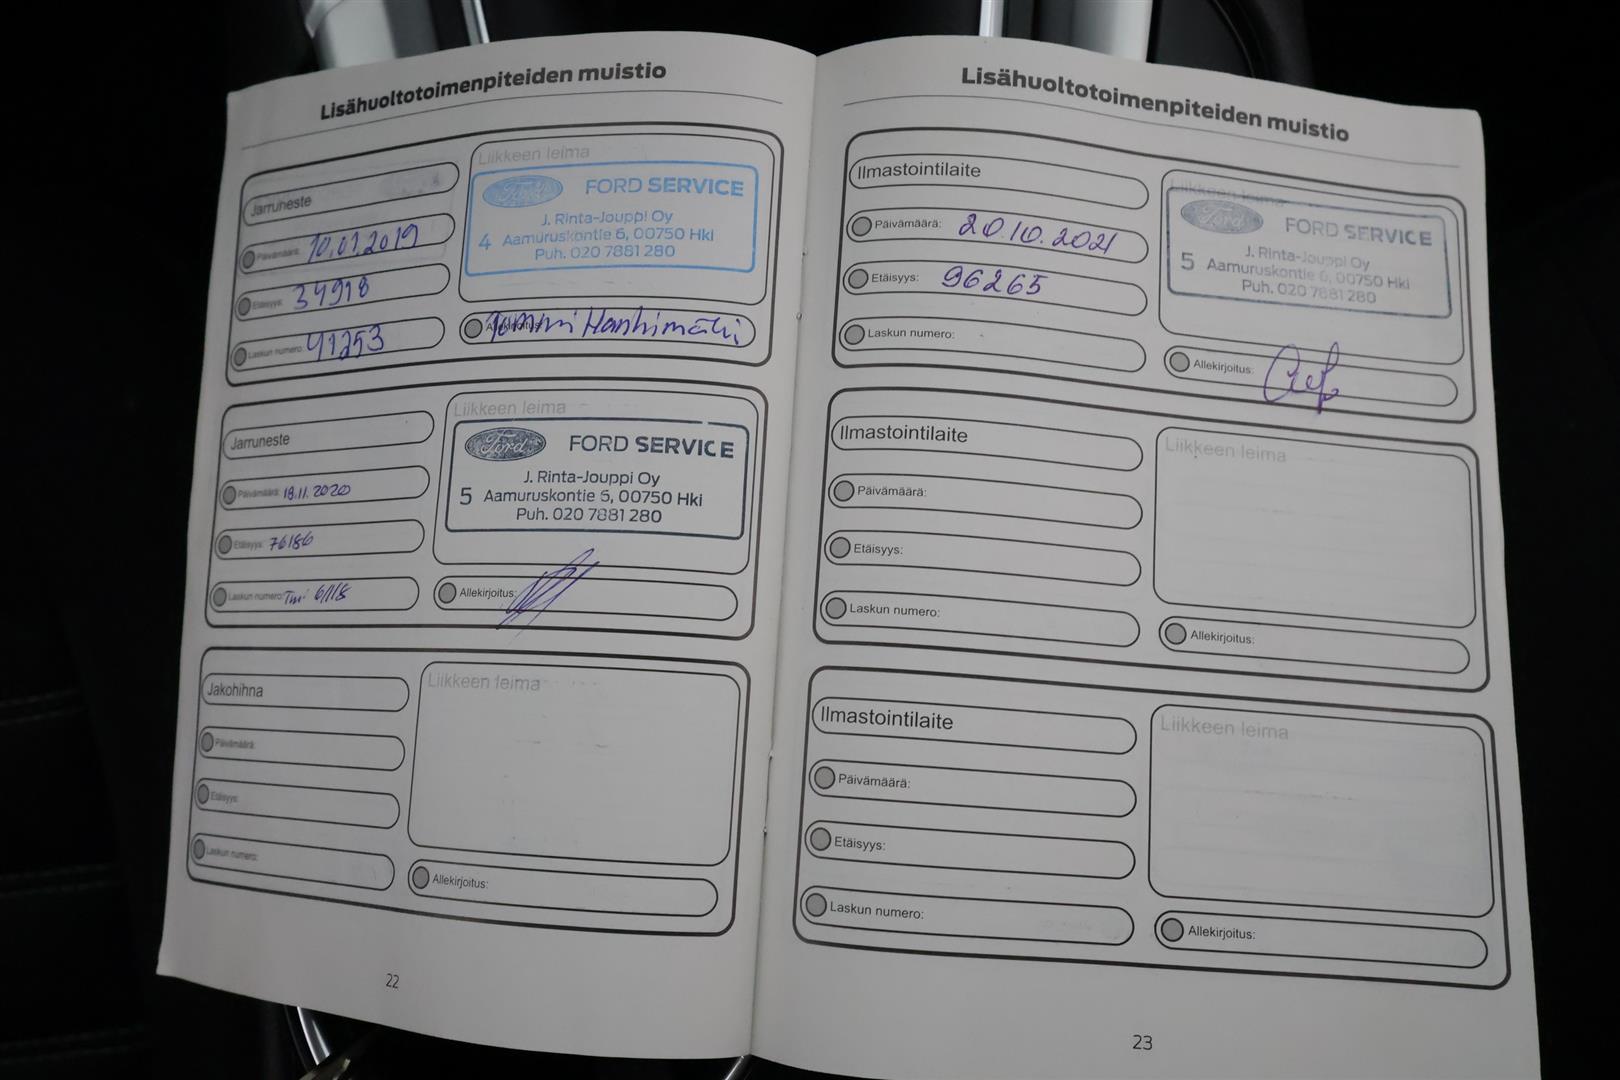 Lisähuoltotoimenpiteiden muistio
Jarruneste
Päivämäärä: 10.01.2019
Etäisyys: 34918
Laskun numero: 41253
Liikkeen leima
Ford
FORD SERVICE
J. Rinta-Jouppi Oy
4 Aamuruskontie 6, 00750 Hki
Puh. 020 7881 280
Allekirjoitus:
Jarruneste
Päivämäärä: 18.11.2020
Etäisyys: 76186
Laskun numero:
Liikkeen leima
Ford
FORD SERVICE
J. Rinta-Jouppi Oy
5 Aamuruskontie 6, 00750 Hki
Puh. 020 7881 280
Allekirjoitus:
Jakohihna
Päivämäärä:
Etäisyys:
Laskun numero:
Liikkeen leima
Allekirjoitus:
22
Lisähuoltotoimenpiteiden muistio
Ilmastointilaite
Päivämäärä: 20.10.2021
Etäisyys: 96265
Laskun numero:
Liikkeen leima
Ford
FORD SERVICE
J. Rinta-Jouppi Oy
5 Aamuruskontie 6, 00750 Hki
Puh. 020 7881 280
Allekirjoitus:
Ilmastointilaite
Päivämäärä:
Etäisyys:
Laskun numero:
Liikkeen leima
Allekirjoitus:
Ilmastointilaite
Päivämäärä:
Etäisyys:
Laskun numero:
Liikkeen leima
Allekirjoitus:
23